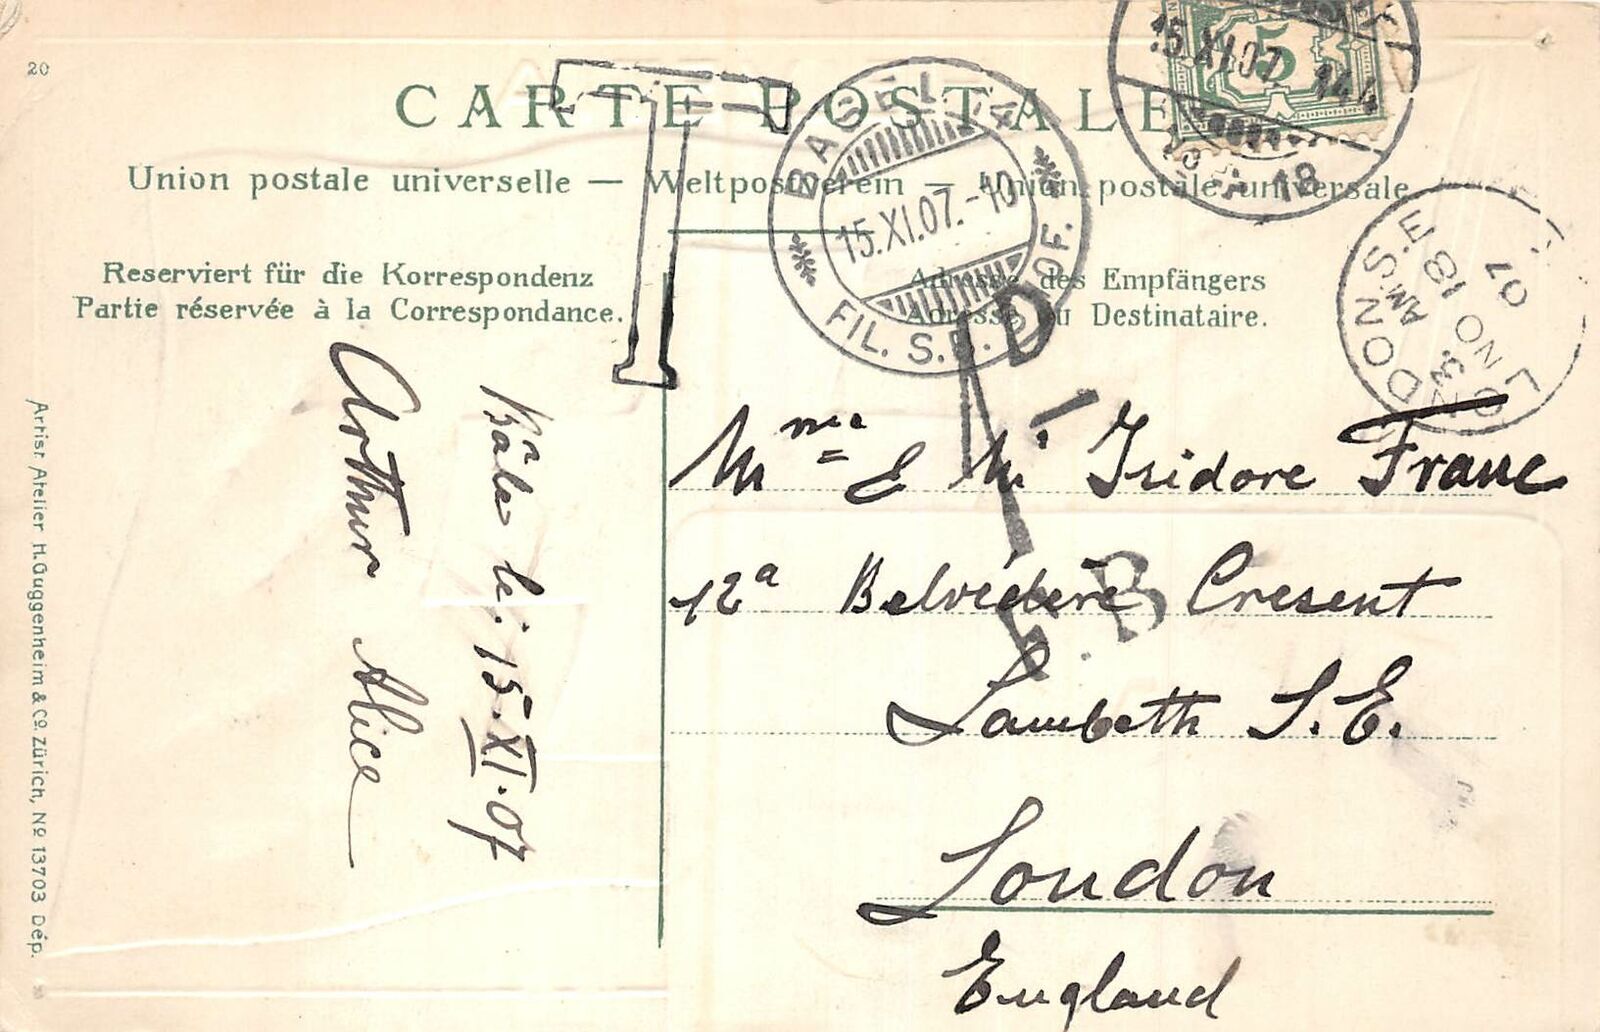 20
CARTE POSTALE
Union postale universelle — Weltpostverein — Unione postale universale
Reserviert für die Korrespondenz
Partie réservée à la Correspondance.
Adresse des Empfängers
Adresse du Destinataire.
5
15.XI.07
18
BASEL 4
15.XI.07.-10
FIL. S.B. HOF.
T
LONDON S.E
AM
18 NO
07
1 D.
F.B
Mme E Mr Isidore Franc
12a Belvédère Cresent
Lambeth S.E.
London
England
Bâle le: 15.XI.07
Arthur Alice
Artist. Atelier H. Guggenheim & Co. Zürich, No 13703 Dép.